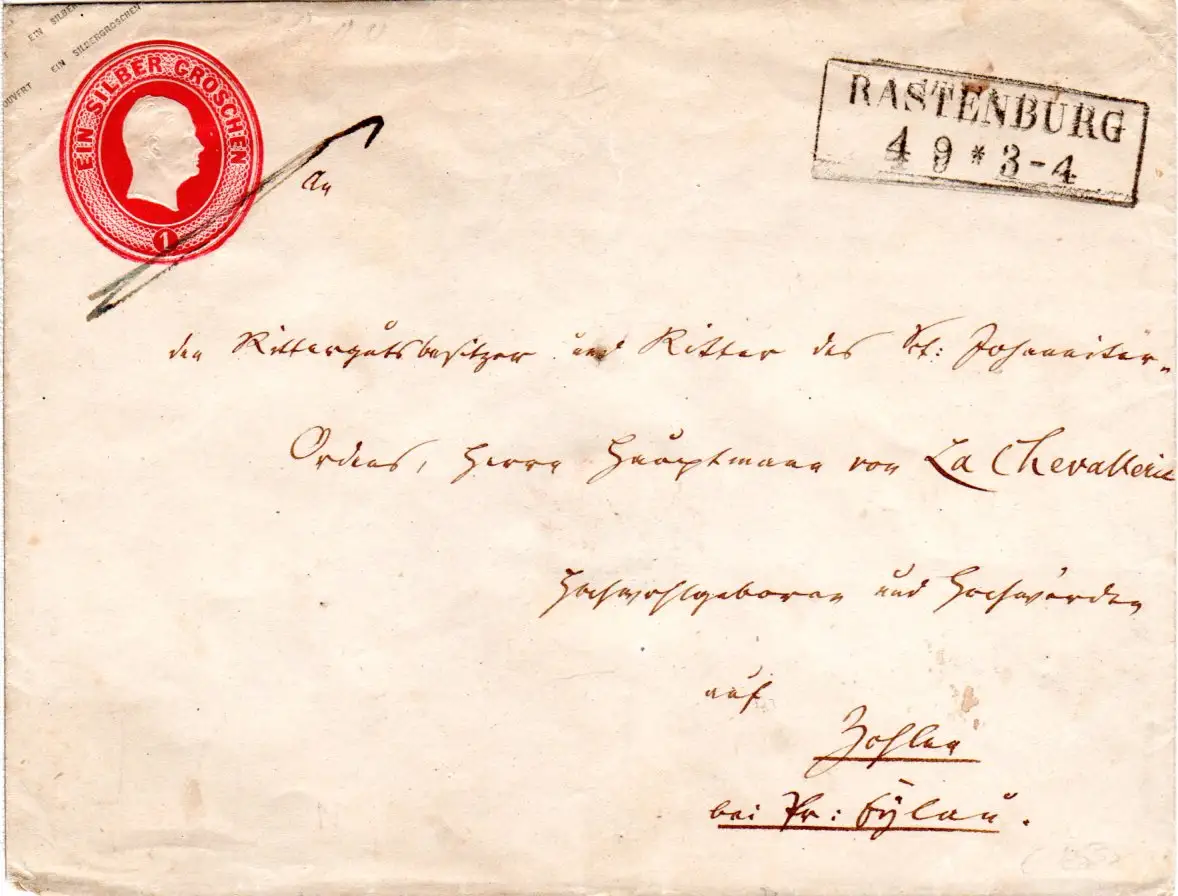 EIN SILBER
EIN SILBERGROSCHEN
OUVERT
EIN SILBER GROSCHEN
1
RASTENBURG
4 9 * 3-4
An
den Rittergutsbesitzer und Ritter des Sct: Johanniter-
Ordens, Herrn Hauptmann von La Chevallerie
Hochwohlgeboren und Hochwürden
auf
Zohlen
bei Pr: Eylau.